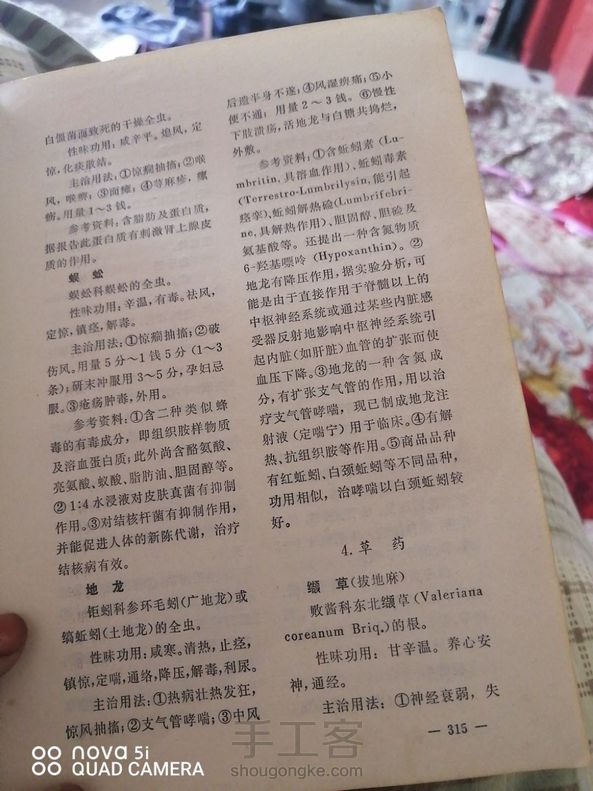 白僵菌而致死的干燥全虫。
性味功用,咸辛平。熄风,定
惊,化痰散结。
主治用法:①惊癎抽搐;②喉
风,喉痹;③面瘫;④荨麻疹,瘰
疬。用量1~3钱。
参考资料:含脂肪及蛋白质,
据报告此蛋白质有刺激肾上腺皮
质的作用。
蜈蚣
蜈蚣科蜈蚣的全虫。
性味功用:辛温,有毒。祛风,
定惊,镇痉,解毒。
主治用法:①惊癎抽搐;②破
伤风。用量5分~1钱5分(1~3
条);研末冲服用3~5分,孕妇忌
服。③疮疡肿毒,外用。
参考资料:①含二种类似蜂
毒的有毒成分,即组织胺样物质
及溶血蛋白质;此外尚含酪氨酸、
亮氨酸、蚁酸、脂肪油、胆固醇等。
②1:4水浸液对皮肤真菌有抑制
作用。③对结核杆菌有抑制作用,
并能促进人体的新陈代谢,治疗
结核病有效。
地龙
钜蚓科参环毛蚓(广地龙)或
缟蚯蚓(土地龙)的全虫。
性味功用:咸寒。清热,止痉,
镇惊,定喘,通络,降压,解毒,利尿。
主治用法:①热病壮热发狂,
惊风抽搐;②支气管哮喘;③中风
后遗半身不遂;④风湿痹痛;⑤小
便不通;用量2~3钱。⑥慢性
下肢溃疡,活地龙与白糖共捣烂,
外敷。
参考资料:①含蚯蚓素(Lu-
mbritin,具溶血作用)、蚯蚓毒素
(Terrestro-Lumbrilysin,能引起
痉挛)、蚯蚓解热碱(Lumbrifebri-
ne,具解热作用)、胆固醇、胆硷及
氨基酸等。还提出一种含氮物质
6-羟基嘌呤(Hypoxanthin)。②
地龙有降压作用,据实验分析,可
能是由于直接作用于脊髓以上的
中枢神经系统或通过某些内脏感
受器反射地影响中枢神经系统引
起内脏(如肝脏)血管的扩张而使
血压下降。③地龙的一种含氮成
分,有扩张支气管的作用,用以治
疗支气管哮喘,现已制成地龙注
射液(定喘宁)用于临床。④有解
热、抗组织胺等作用。⑤商品品种
有红蚯蚓、白颈蚯蚓等不同品种,
功用相似,治哮喘以白颈蚯蚓较
好。
4.草药
缬草(拔地麻)
败酱科东北缬草(Valeriana
coreanum Briq.)的根。
性味功用:甘辛温。养心安
神,通经。
主治用法:①神经衰弱,失
— 315 —
nova 5i
QUAD CAMERA
手工客
shougongke.com